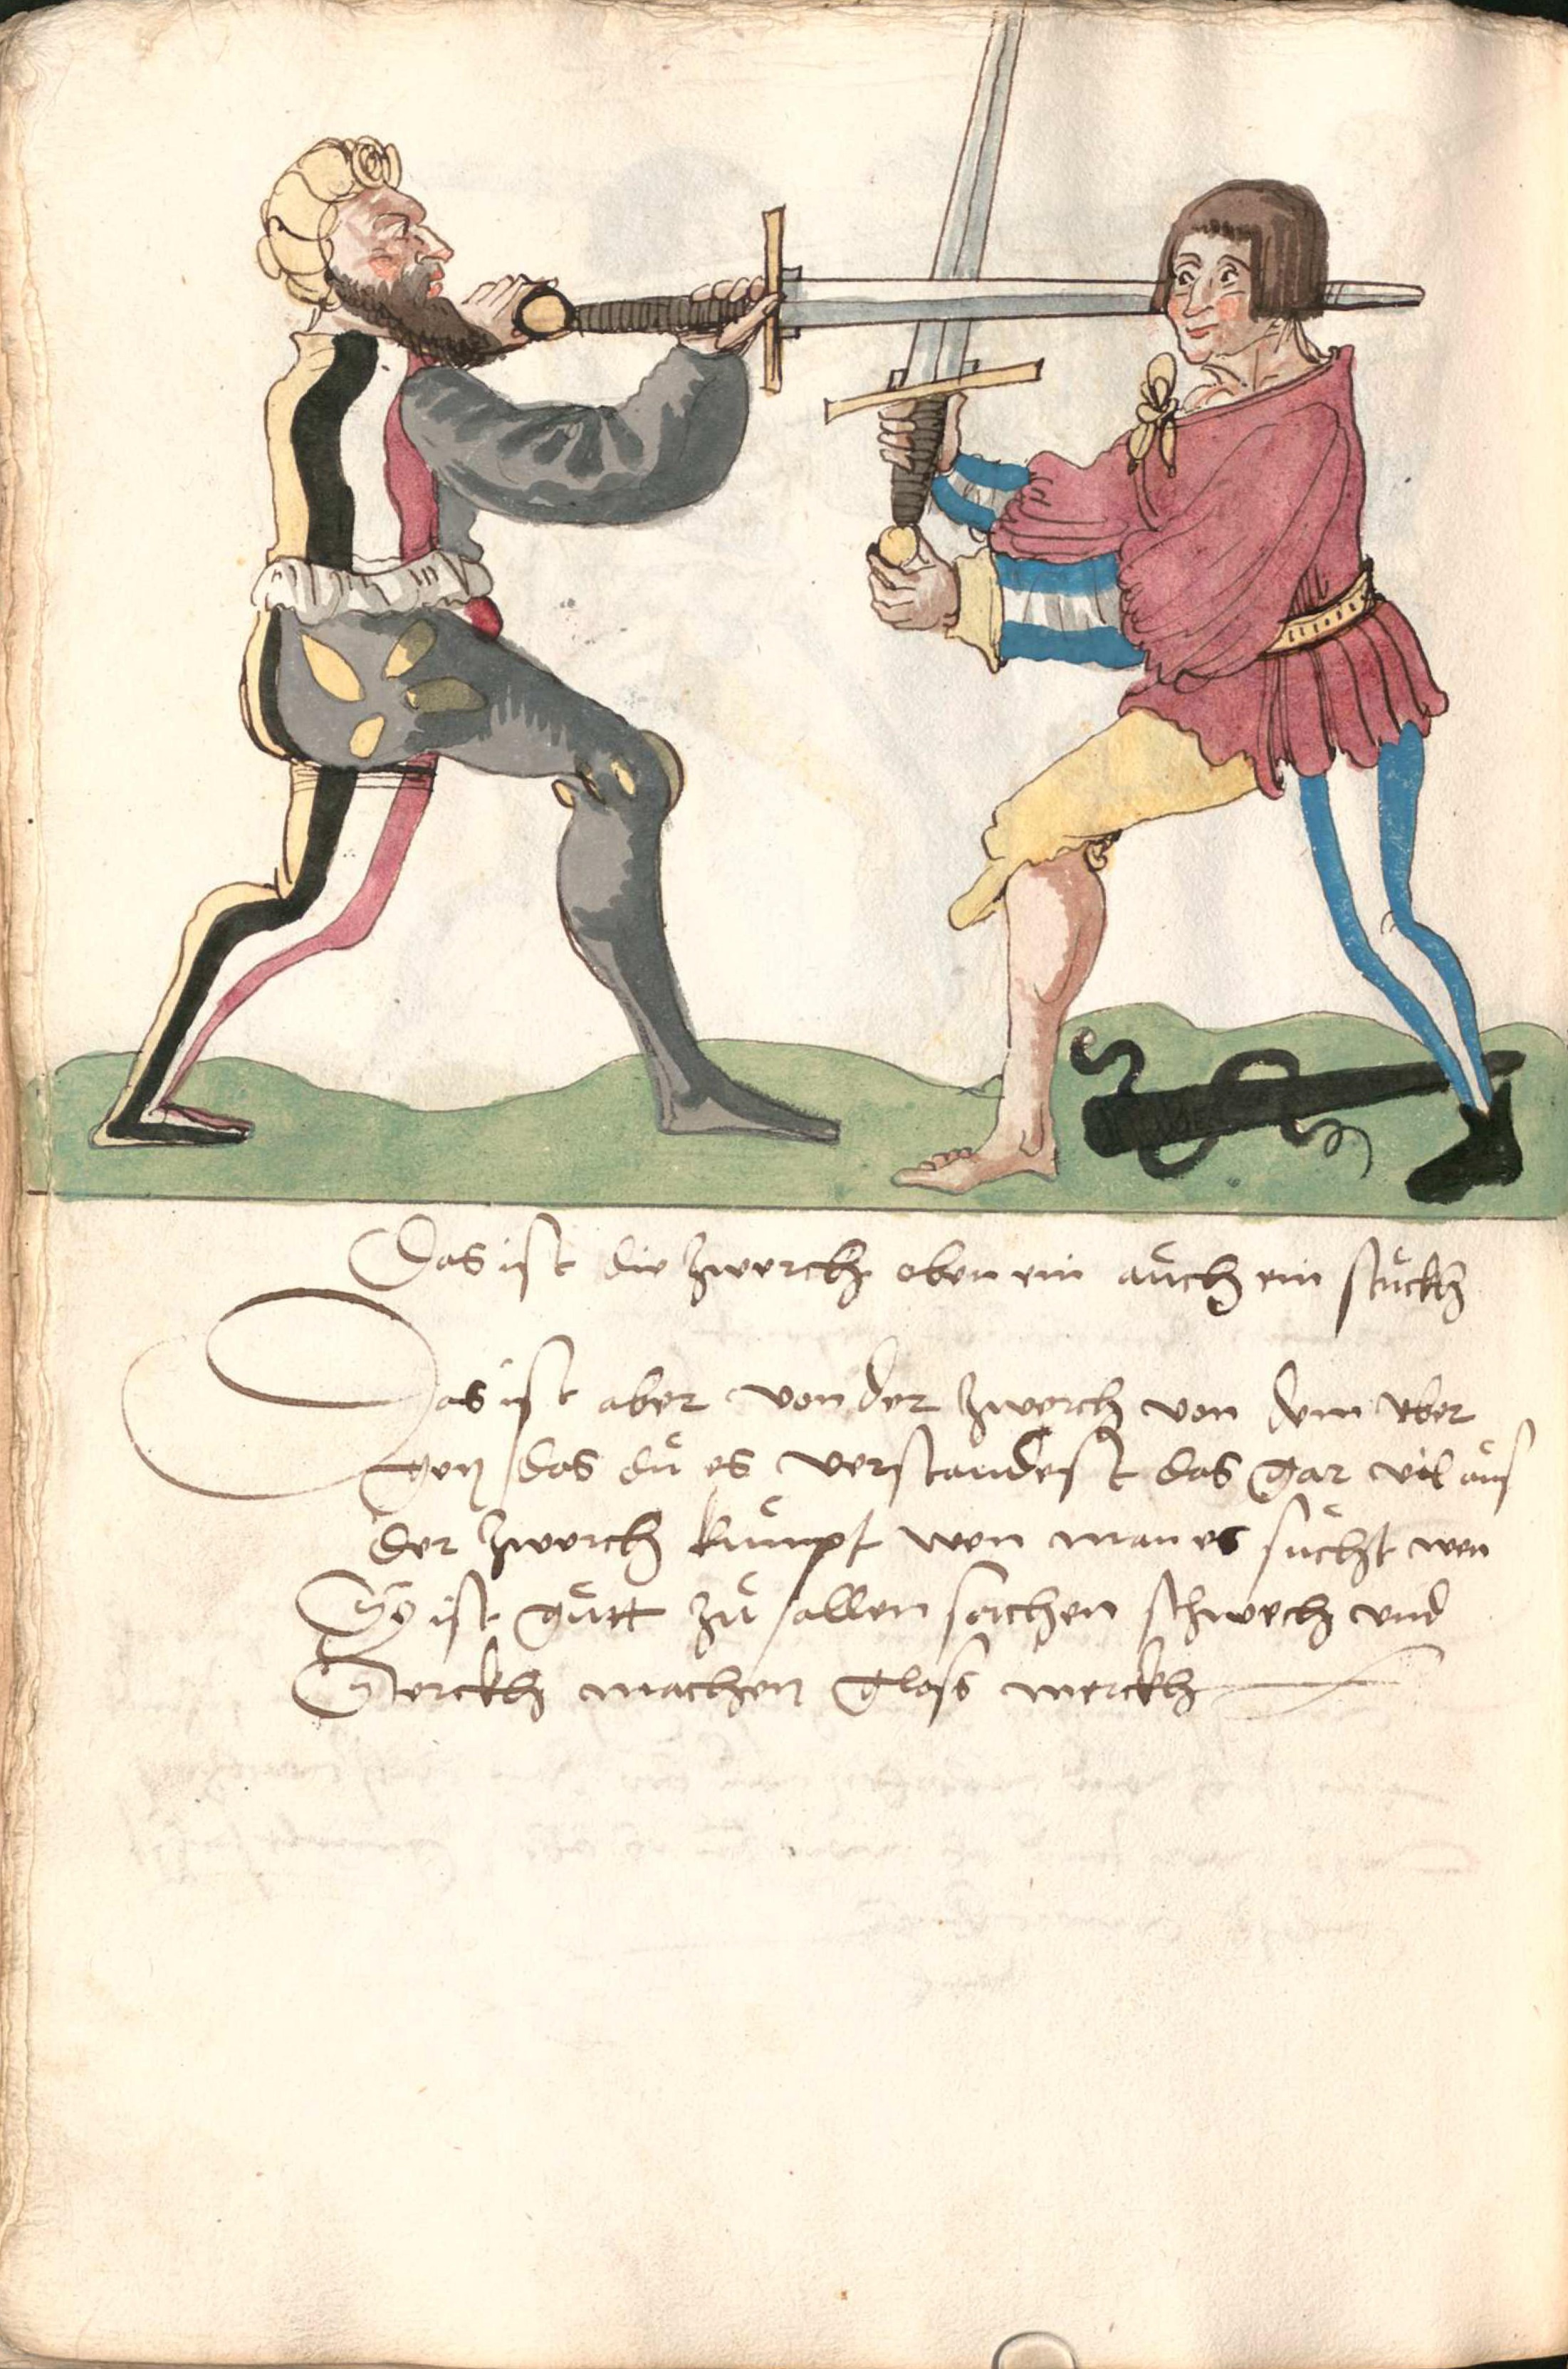 Das ist die zwerckh oben ein aůch ein stůckh
Das ist aber von der zwerch von dem vber
gen das dů es verstandest das gar vil aůs
der zwerch kůmpt wen man es sůcht wen
So ist gůtt zů allen sachen schwech vnd
Sterckh machen gloss merckh